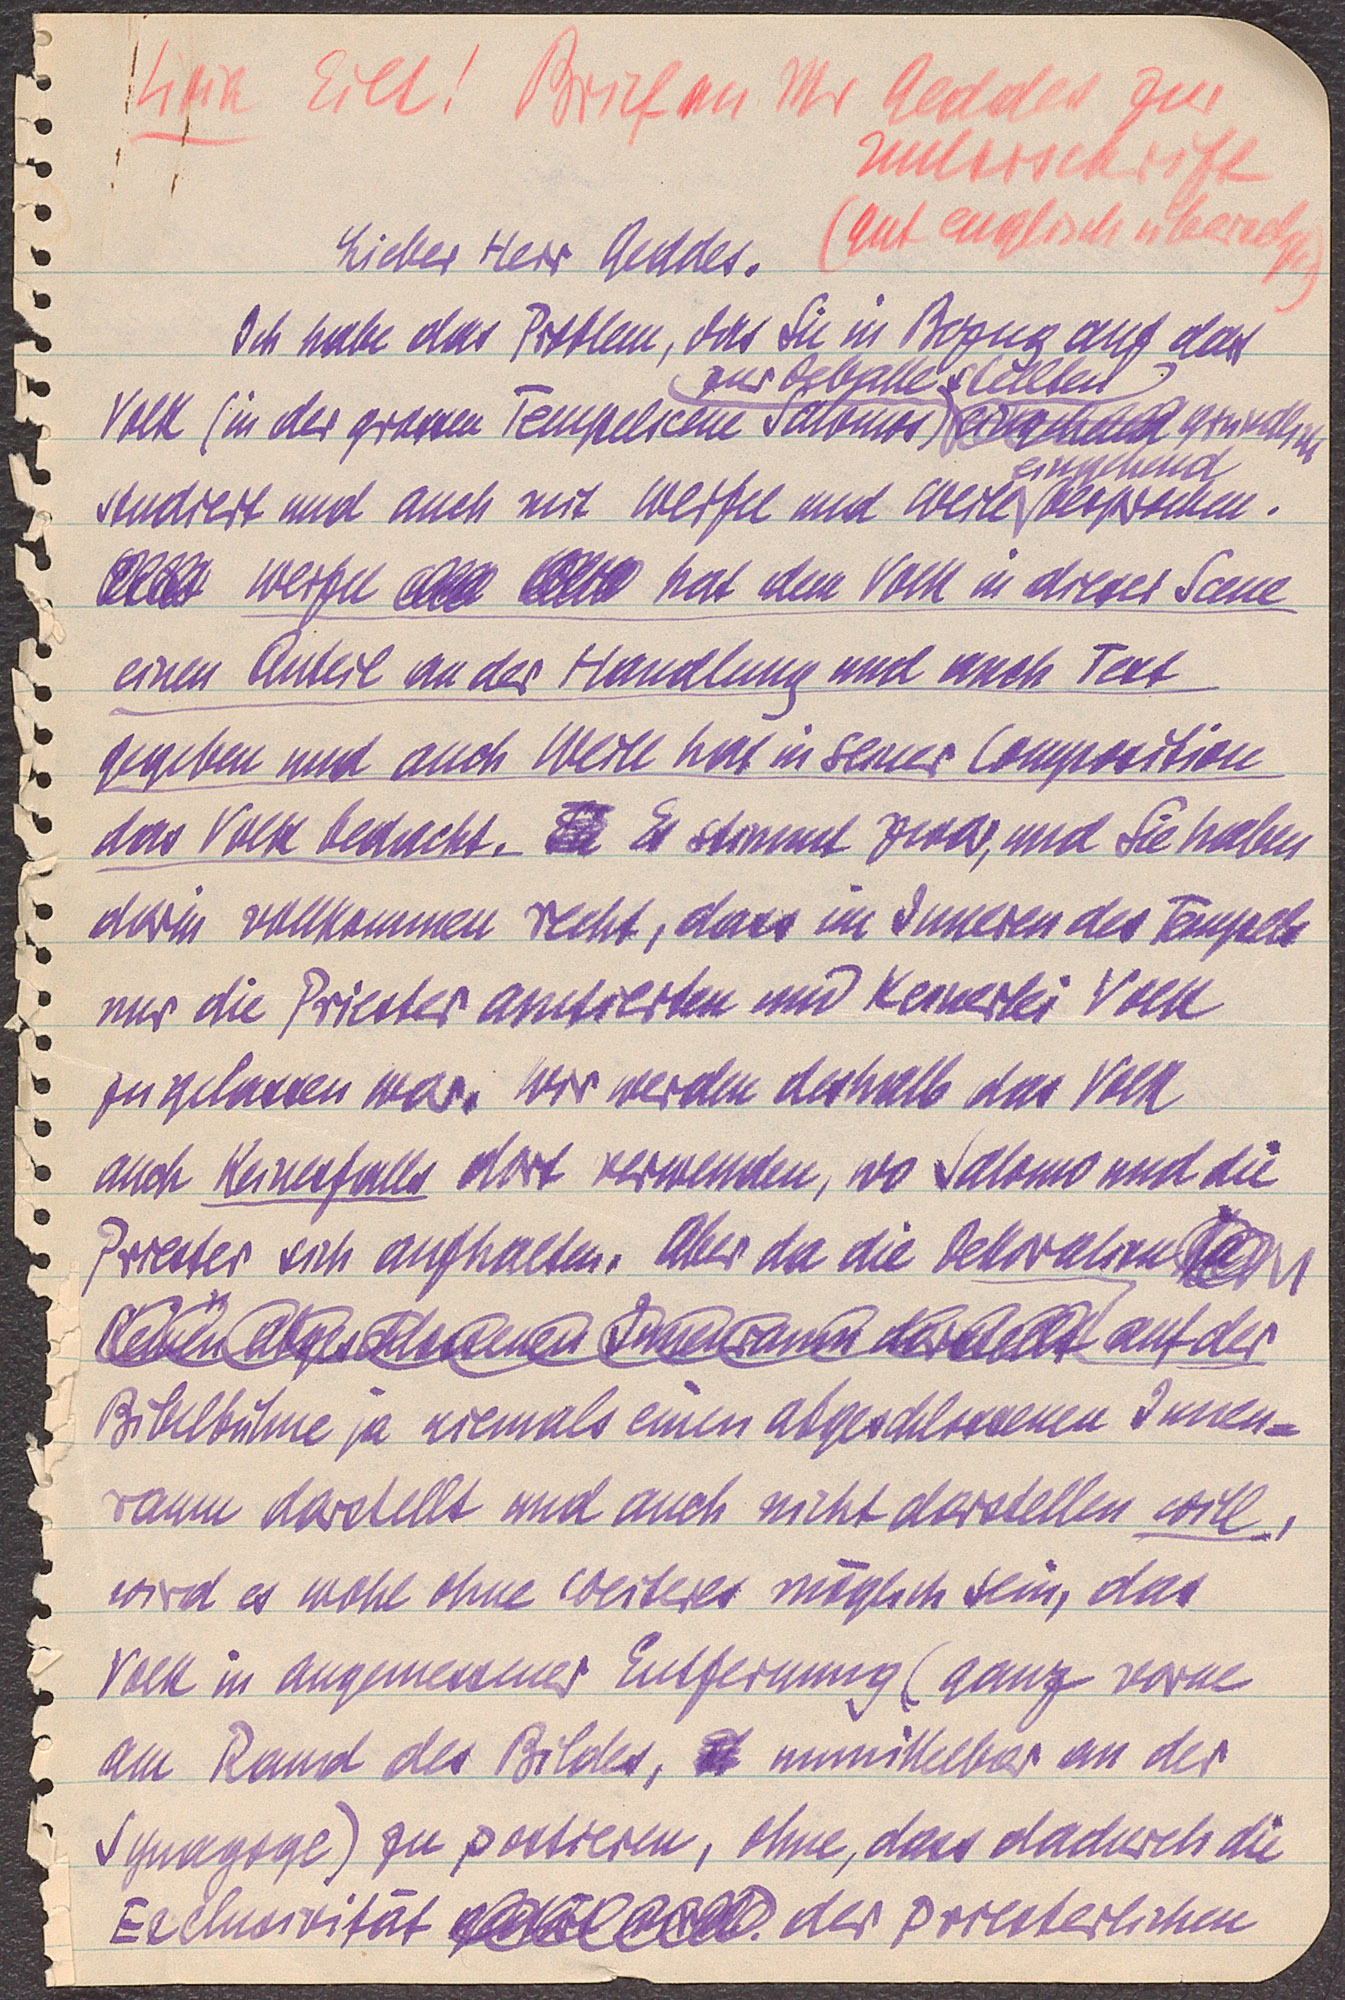 Eilt! Brief an Mr Geddes zur
Unterschrift
(gut englisch
Lieber Herr Geddes.
Ich habe das Problem, das Sie in Bezug auf das
zur Debatte stellten
Volk (in der grossen Tempelscene Salomos) gründlich
eingehend
studiert und auch mit Werfel und Weill besprochen.
Werfel hat dem Volk in dieser Scene
einen Anteil an der Handlung und auch Text
gegeben und auch Weill hat in seiner Composition
das Volk bedacht. Es stimmt zwar, und Sie haben
darin vollkommen recht, dass im Inneren des Tempels
nur die Priester amtierten und keinerlei Volk
zugelassen war. Wir werden deshalb das Volk
auch keinesfalls dort verwenden, wo Salomo und die
Priester sich aufhalten. Aber da die Dekoration
keinen abgeschlossenen Innenraum darstellt auf der
Bibelbühne ja niemals einen abgeschlossenen Innen=
raum darstellt und auch nicht darstellen will,
wird es wohl ohne Weiteres möglich sein, das
Volk in angemessener Entfernung (ganz vorne
am Rand des Bildes, unmittelbar an der
Synagoge) zu postieren, ohne, dass dadurch die
Exclusivität der priesterlichen